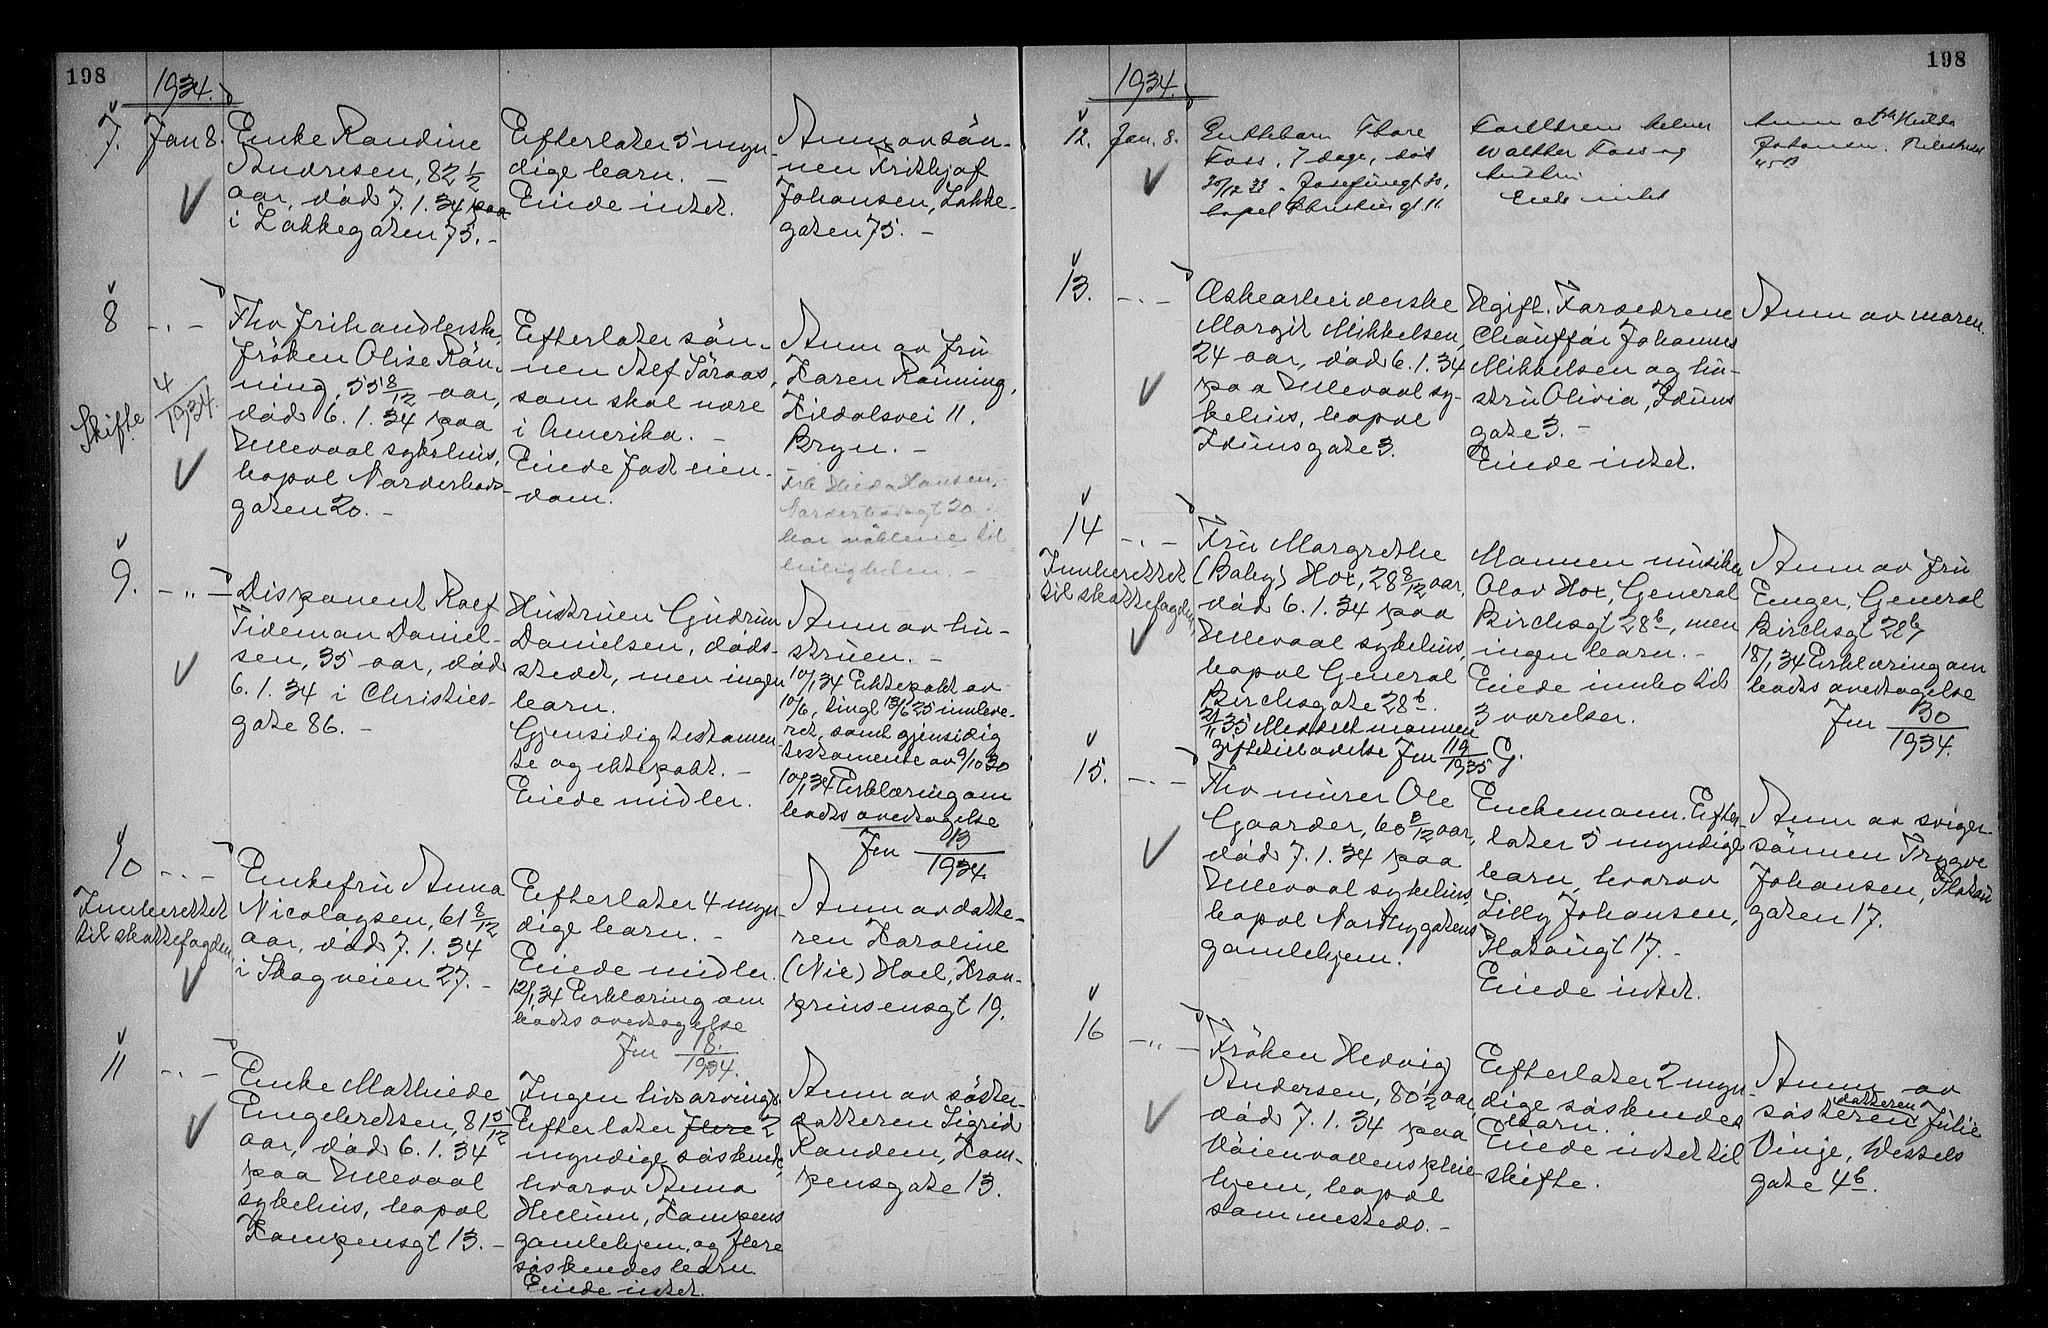 198
1934.
7. Jan 8.
Enke Randine
Andresen, 82 1/2
aar, död 7.1.34 paa
i Lakkegaten 75. -
Efterlater 5 myn-
dige barn. -
Eiede intet.
Anm. av søn-
nen Frithjof
Johansen, Lakke-
gaten 75. -
8 -.-
Skifte 4/1934
Fhv frihandlerske,
fröken Olise Røn-
ning, 55 8/12 aar,
död 6.1.34 paa
Ullevaal sykehus,
bopæl Norderhovs-
gaten 20. -
Efterlater søn-
nen Alf
som skal være
i Amerika. -
Eiede fast eien-
dom.
Anm av fru
Karen Rönning,
Kildalsvei 11.
Bryn. -
Frk Hansen,
Norderhovsgt 20
har nöklene til
leiligheten. -
9. -"-
Disponent Rolf
Tideman Daniel-
sen, 35 aar, död
6.1.34 i Christies-
gate 86. -
Hustruen Gudrun
Danielsen, döds-
stedet, men ingen
barn.
Gjensidig testamen-
te og ektepakt. -
Eiede midler.
Anm av hu-
struen. -
10/1 34 Ektepakt av
10/6, tingl 13/6 25 innleve-
ret, samt gjensidig
testamente av 9/10 30
10/1 34 Erklæring om
boets overtagelse
Jnr 13/1934.
10 -.-
Innberettet
til skattefogden
Enkefru Anna
Nicolaysen, 61 8/12
aar, död 7.1.34
i Skogveien 27. -
Efterlater 4 myn-
dige barn. -
Eiede midler.
12/1 34 Erklæring om
boets overtagelse
Jnr 18./1934.
Anm av datte-
ren Karoline
(Nic) Hoel, Kron-
prinsensgt 19.
11 -.-
Enke Mathilde
Engebretsen, 81 5/12
aar, död 6.1.34
paa Ullevaal
sykehus, bopæl
Kampensgt 13. -
Ingen livsarvinger
Efterlater flere 2
myndige söskende,
hvorav Anna
Hellum, Kampens
gamlehjem, og flere
söskendes barn
Eiede intet.
Anm av söster-
datteren Sigrid
Randem, Kam-
pensgate 13.
198
1934.
12. Jan. 8.
Enkebarn Thore
Foss, 7 dage, död
30/12 33 - Josefinegt 30,
bopæl 11.
Foreldrene
Walther Foss og
hustru
Eiede intet
Anm av frk Hulda
Johansen.
13. -.-
Eskearbeiderske
Margit Mikkelsen,
24 aar, död 6.1.34
paa Ullevaal sy-
kehus, bopæl
Idunsgate 3.
Ugift. Foreldrene
Chauffør Johannes
Mikkelsen og hu-
stru Olivia, Iduns
gate 3. -
Eiede intet.
Anm av moren.
14 -.-
Innberettet
til skattefogden
Fru Margrethe
(Baby) Hox, 28 8/12 aar,
död 6.1.34 paa
Ullevaal sykehus,
bopæl General
Birchsgate 28b.
21/1 35 Meddelt mannen
giftetillatelse Jnr 119/1935
Mannen musiker
Olav Hox, General
Birchsgt 28b, men
ingen barn. -
Eiede innbo til
3 værelser.
Anm av fru
Enger, General
Birchsgt 28b
18/1 34 Erklæring om
boets overtagelse
Jnr 30/1934.
15. -.-
Fhv murer Ole
Gaarder, 60 8/12 aar,
död 7.1.34 paa
Ullevaal sykehus,
bopæl Nordbygatens
gamlehjem.
Enkemann. Efter-
later 5 myndige
barn, hvorav
Lilly Johansen,
Flatøugt 17. -
Eiede intet.
Anm av sviger-
sönnen Trygve
Johansen,
gaten 17.
16 -"-
Fröken Hedvig
Andersen, 80 1/2 aar,
död 7.1.34 paa
Vöienvollens pleie-
hjem, bopæl
sammesteds. -
Efterlater 2 myn-
dige söskendes
barn.
Eiede intet til
skifte.
Anm av
söster datteren Julie
Vinje, Wessels
gate 4b.